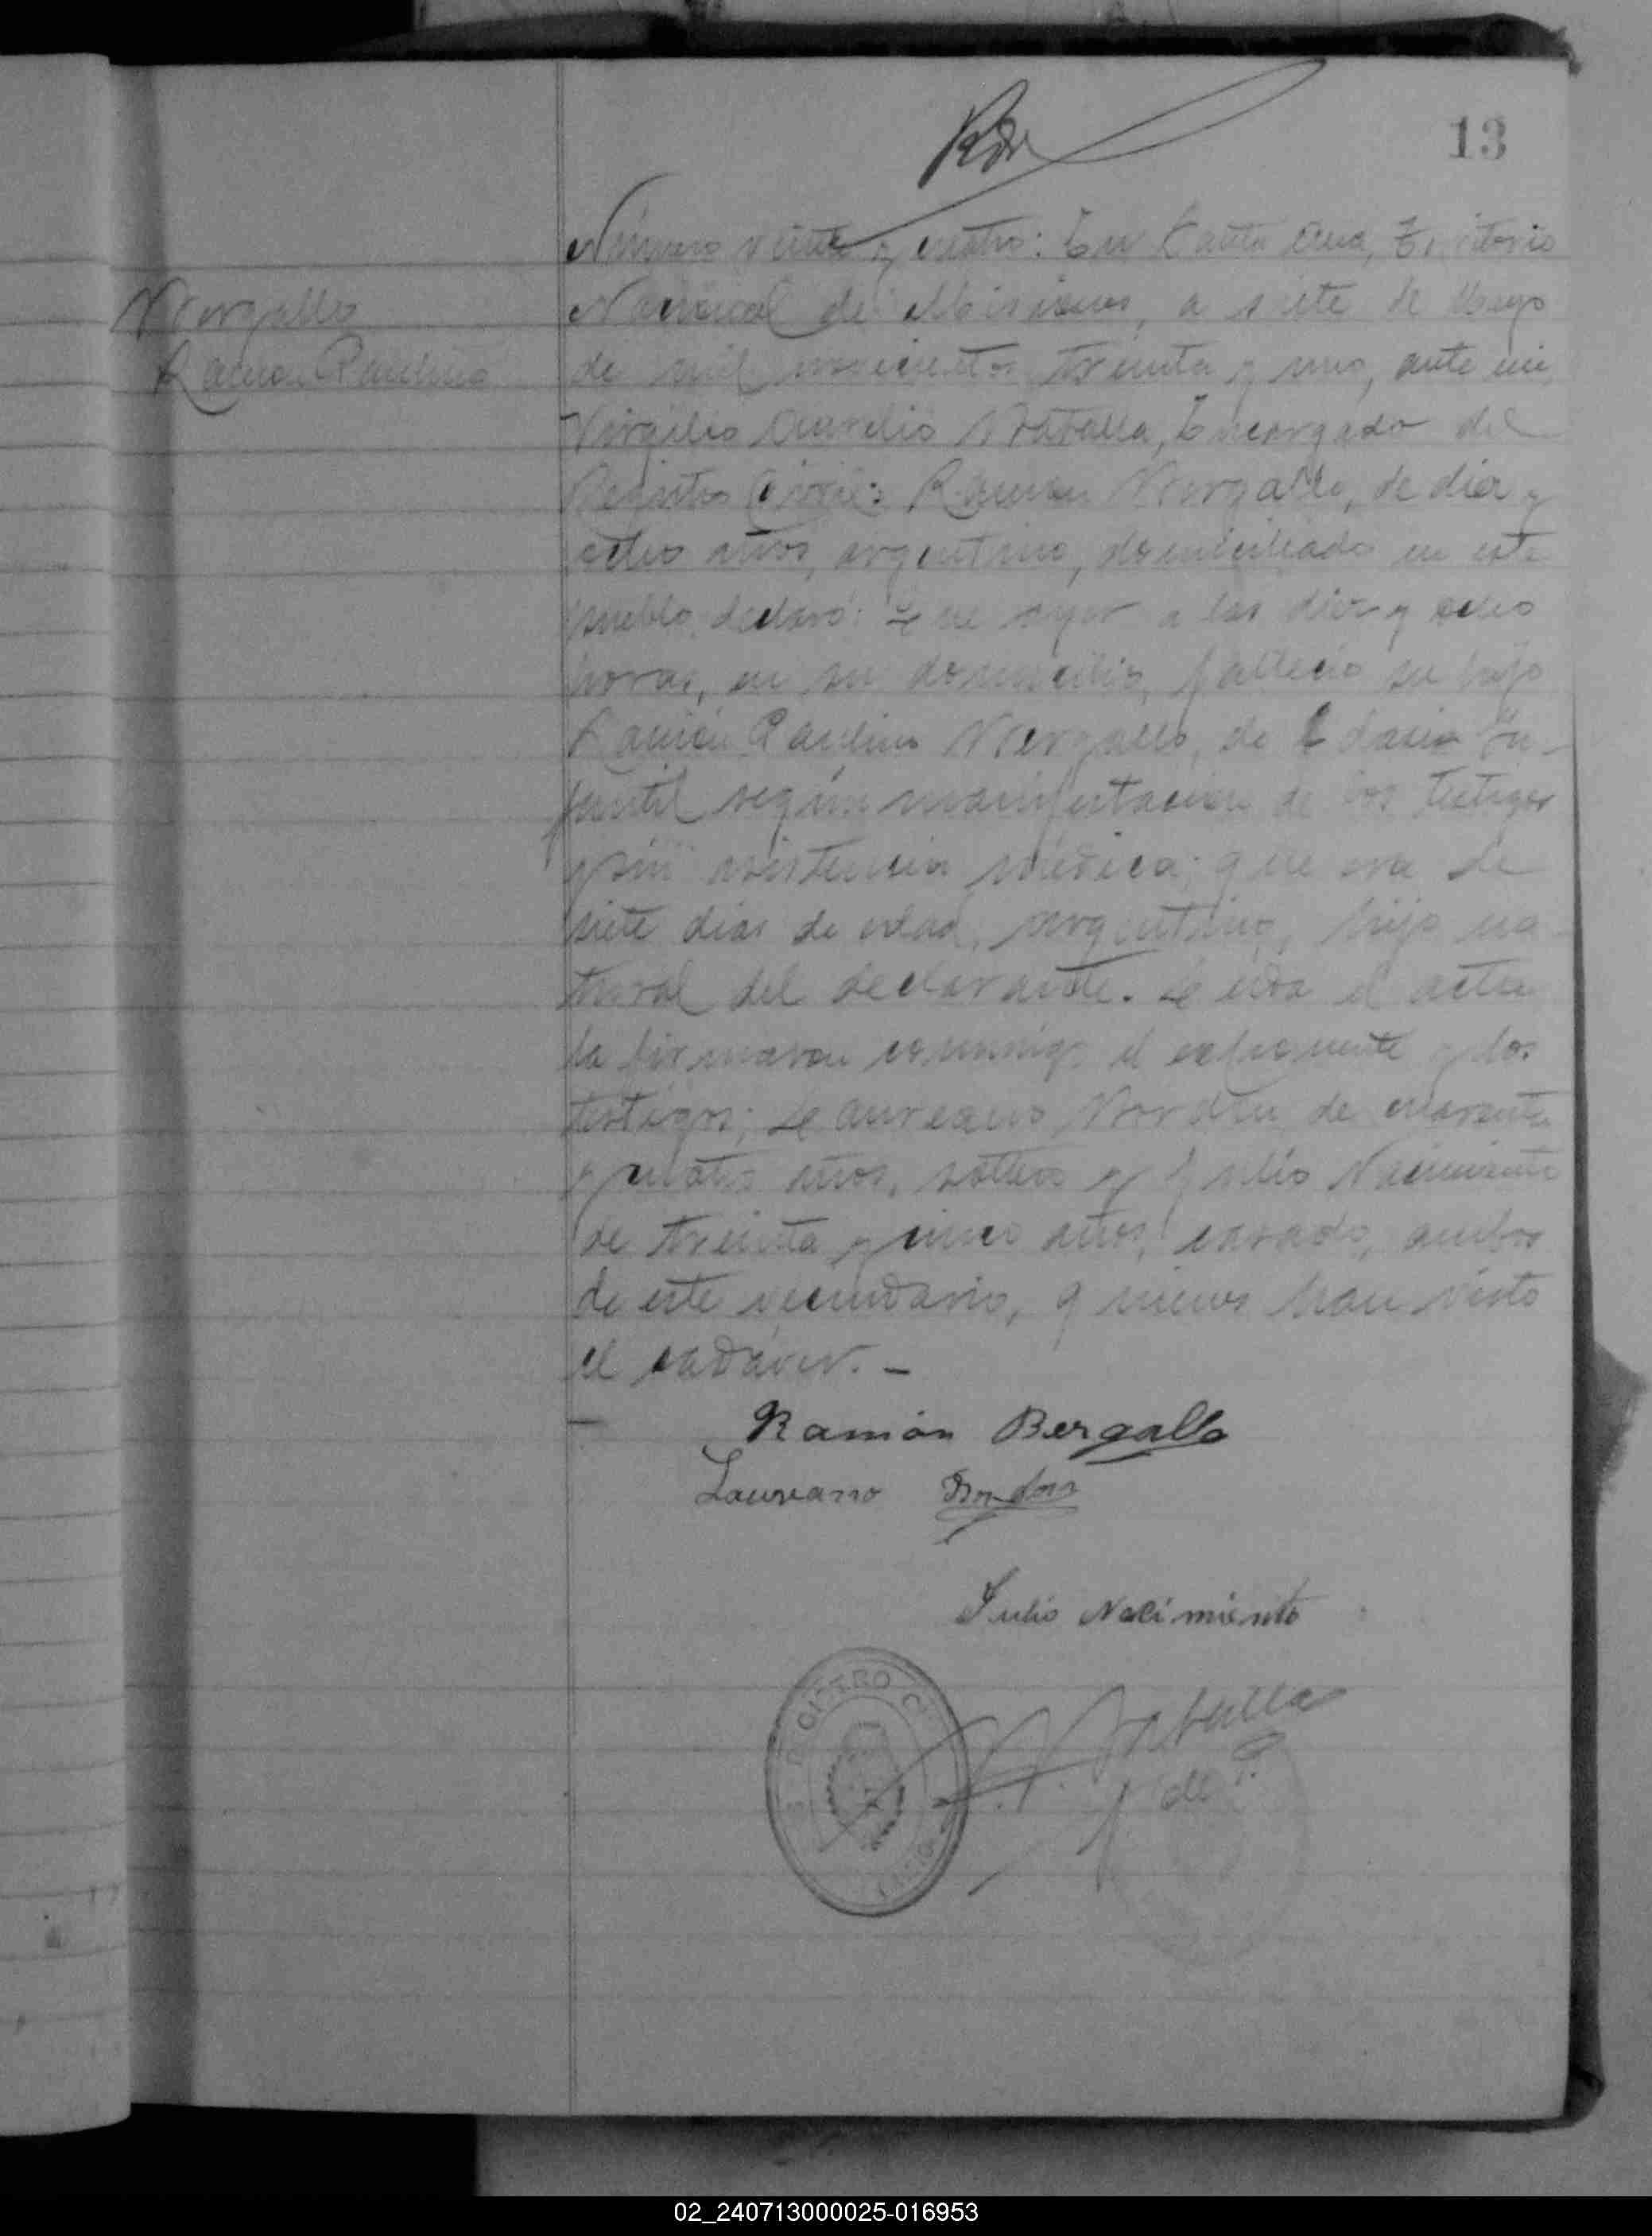 13
Número veinte y cuatro: En Santa Ana, Territorio
Bergallo
Nacional de Misiones, a siete de Mayo
Ramón Paulino
de mil novecientos treinta y uno, ante mi
Virgilio Aurelio Batalla, Encargado del
Registro Civil: Ramón Bergallo, de diez y
ocho años, argentino, domiciliado en este
pueblo, declaró: Que ayer a las diez y ocho
horas, en su domicilio, falleció su hijo
Ramón Paulino Bergallo, de in-
fantil según manifestación de los testigos
y sin asistencia médica; que era de
siete días de edad, argentino, hijo na-
tural del declarante. Leída el acta
la firmaron conmigo el exponente y los
testigos; Laureano de cuarenta
y cuatro años, soltero y Julio Nacimiento
de treinta y cinco años, casado, ambos
de este vecindario, quienes han visto
el cadáver. -
Ramón Bergallo
Laureano
Julio Nacimiento
REGISTRO
Batalla
02_240713000025-016953